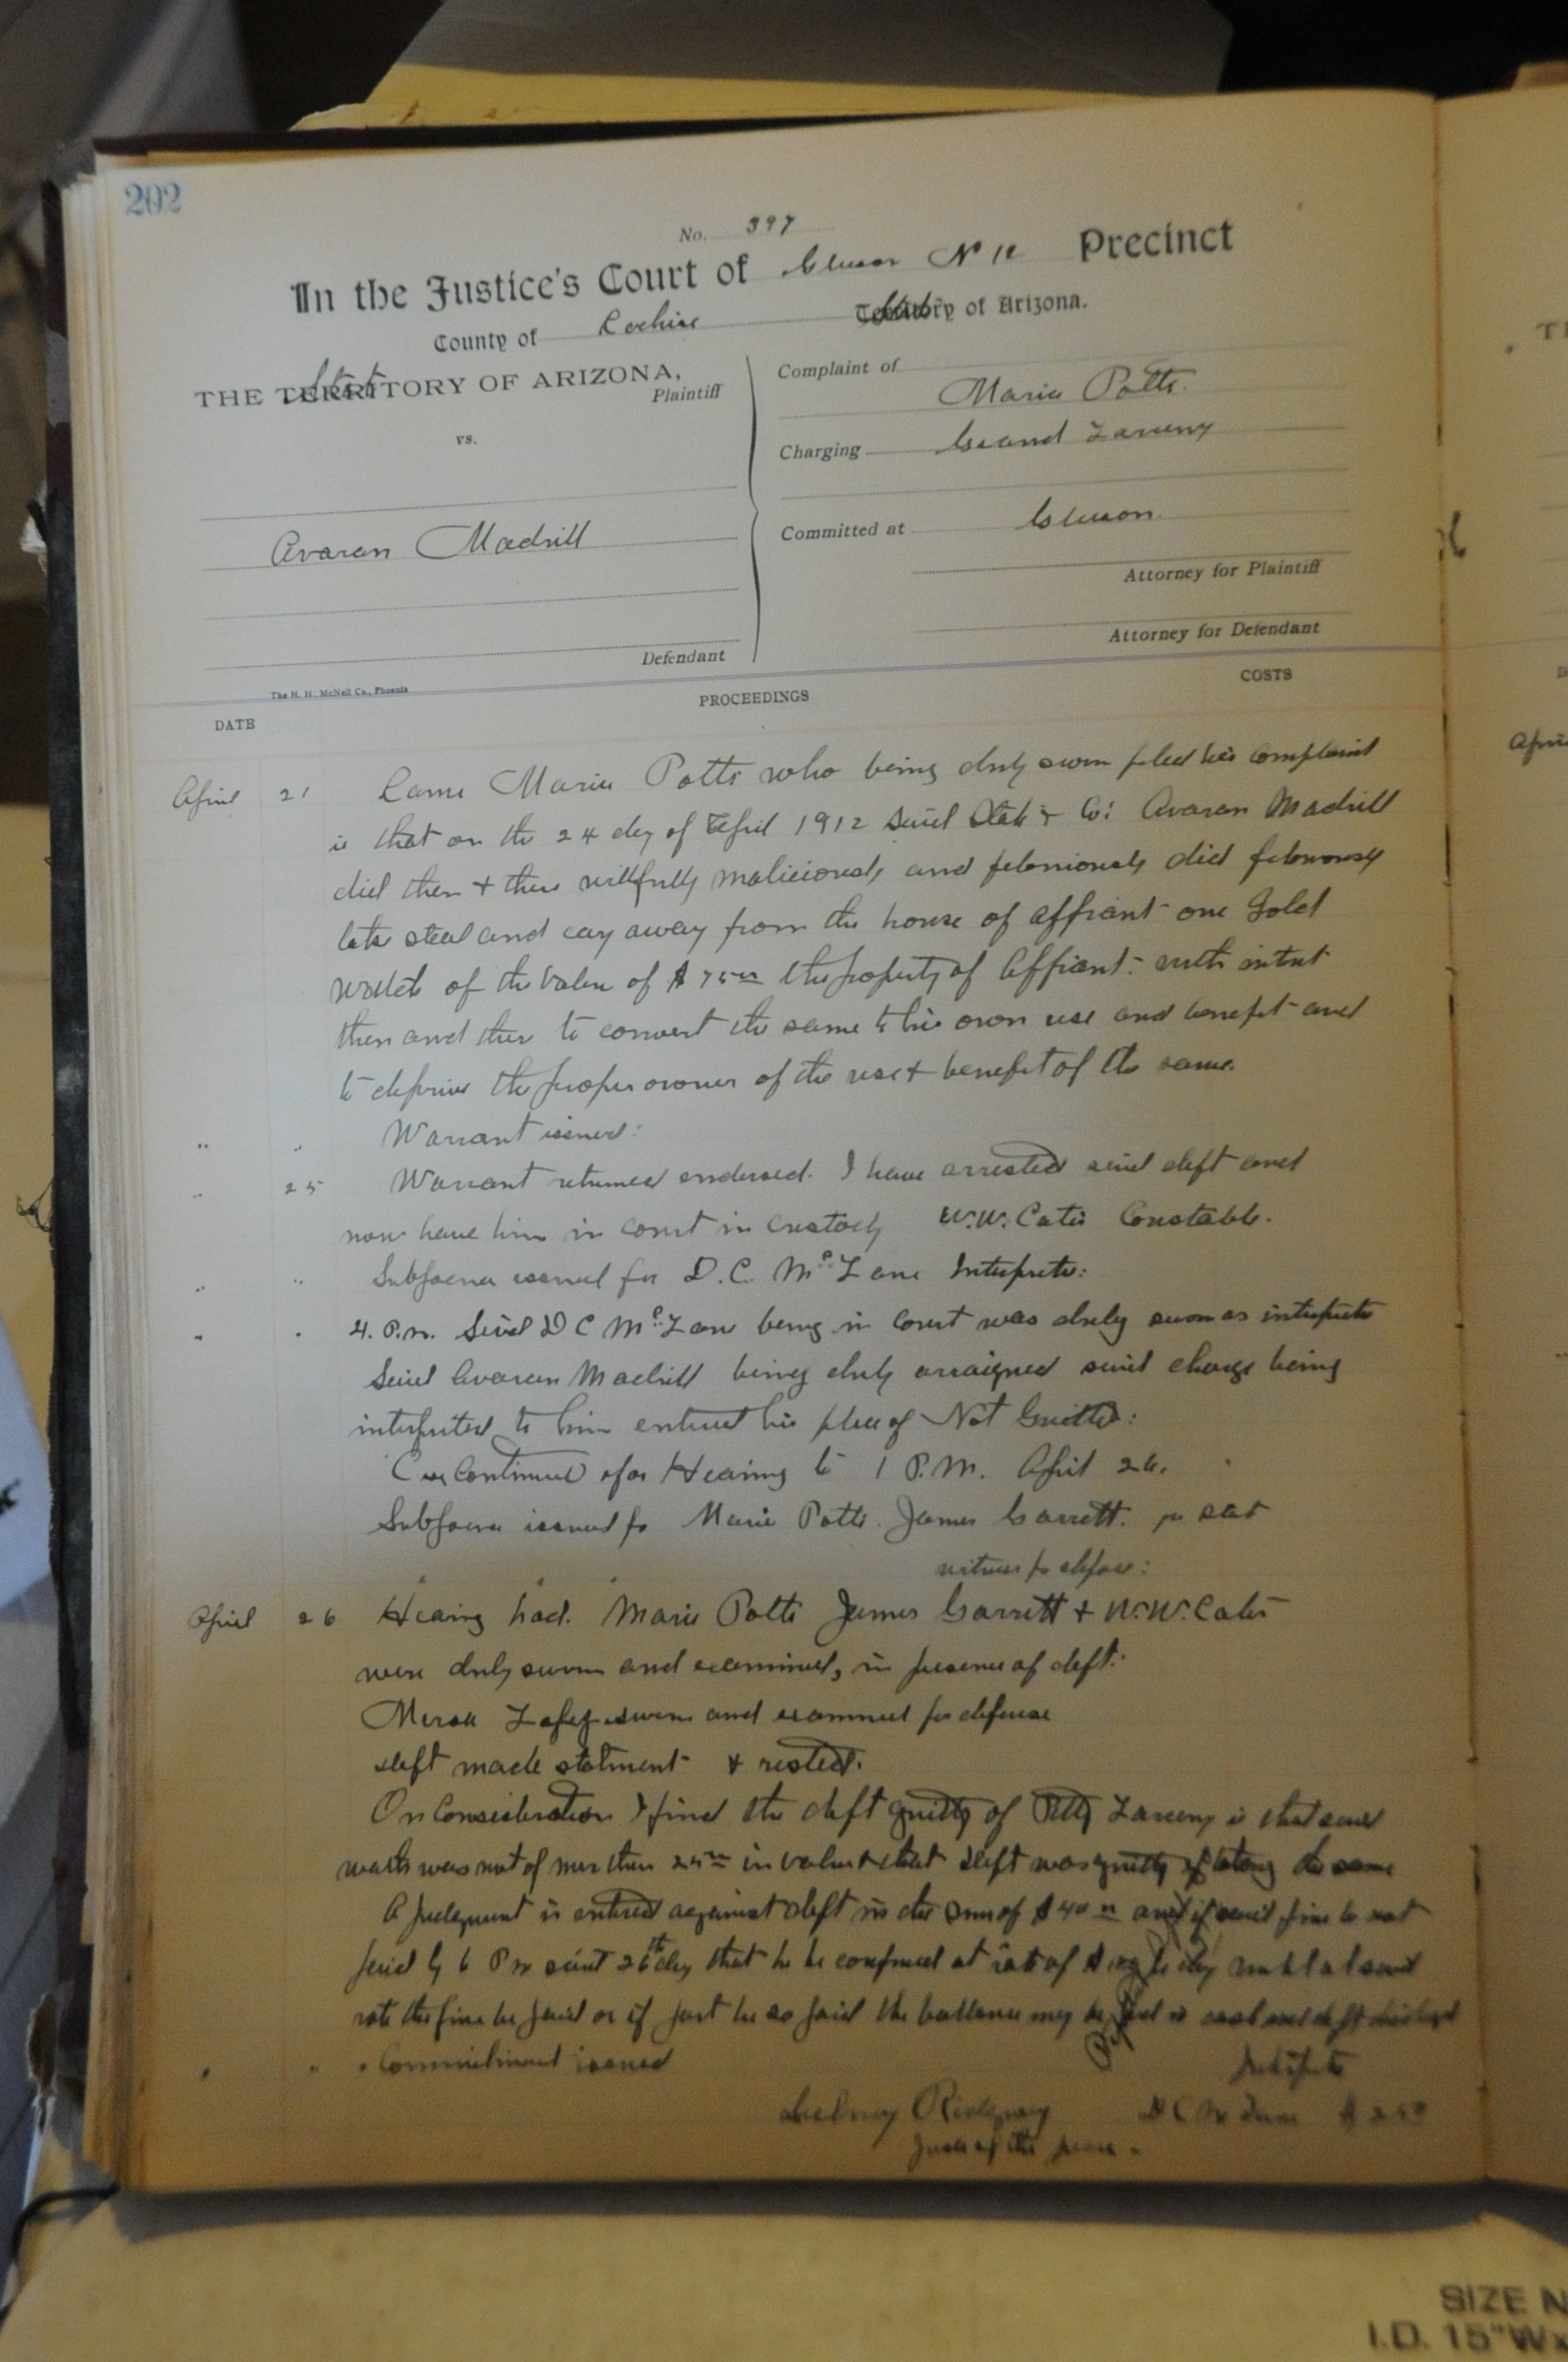 202
No. 397
In the Justice's Court of Gleeson No 12 Precinct
County of Cochise State of Arizona.
State
THE TERRITORY OF ARIZONA,
Plaintiff
vs.
Avaran Madrill
Defendant
Complaint of
Marie Potts.
Charging Grand Larceny
Committed at Gleeson.
Attorney for Plaintiff
Attorney for Defendant
The H. H. McNeil Co., Phoenix
DATE PROCEEDINGS COSTS
April 21 Came Marie Potts who being duly sworn filed her complaint
is that on the 24 day of April 1912 said State & Co: Avaran Madrill
did then & there willfully maliciously and feloniously did feloniously
take steal and cary away from the house of affiant one Gold
watch of the value of $75 the property of Affiant: with intent
then and ther to convert the same to his own use and benefit and
to deprive the proper owner of the use & benefit of the same.
" " Warrant issued:
" 25 Warrant returned endorsed. I have arrested said deft and
now have him in court in custody W.W. Cates Constable.
" " Subpoena issued for D.C. Mc Lane Interpreter:
" " 4. P.m. Said D C Mc Lane being in court was duly sworn as interpreter
Said Avaran Madrill being duly arraigned said charge being
interpreted to him entered his plea of Not Guilty:
Case Continued for Hearing to 1 P.M. April 26.
Subpoena issued for Marie Potts. James Garrett. for state
witness for defense:
April 26 Hearing had. Marie Potts James Garrett & W.W. Cates
were duly sworn and examined, in presence of deft:
Lopez sworn and examined for defense
deft made statment & rested.
On Consideration I find the deft guilty of Petty Larceny is that said
watch was not of more then in value & that deft was guilty of taking the same
A judgment is entered against deft in the sum of $40 and if said fine be not
paid by 6 P m said 26th day that he be confined at rate of $ day until at said
rate the fine be paid or if part be so paid the ballance may be paid in cash and deft discharged
" " " Commitment issued
Interpreter
Sidney Ridgway D C Mc Lane $ 2.50
Justice of the peace.
April
SIZE N
I.D. 15"Wx